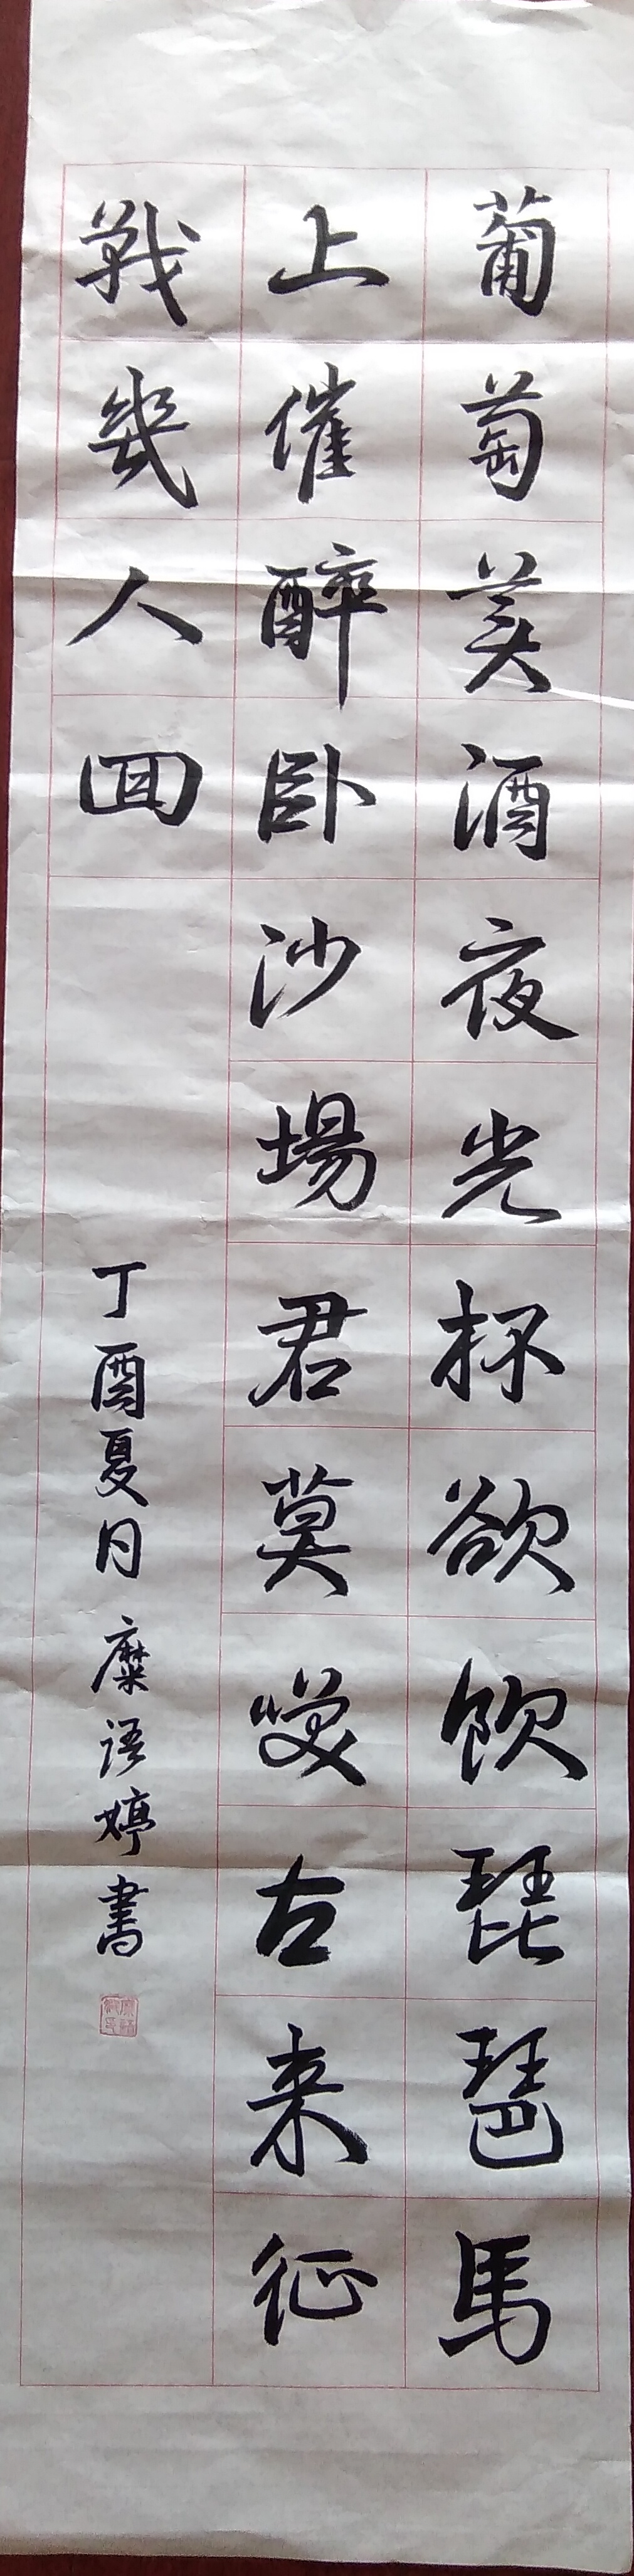 葡萄美酒夜光杯欲飲琵琶馬
上催醉卧沙場君莫唉古来征
戰幾人回
丁酉夏月糜语婷書